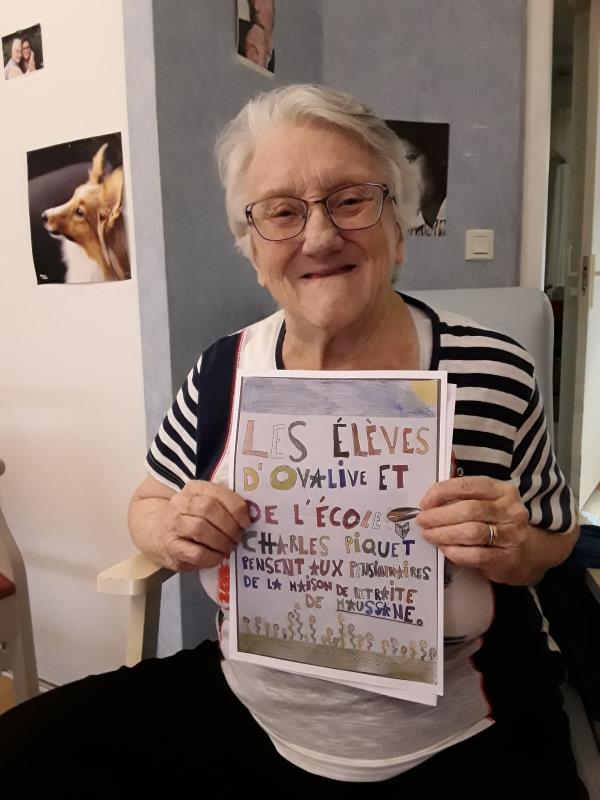 LES ÉLÈVES
D'OVALIVE ET
DE L'ÉCOLE
CHARLES PIQUET
PENSENT AUX PENSIONNAIRES
DE LA MAISON DE RETRAITE
DE MAUSSANE.